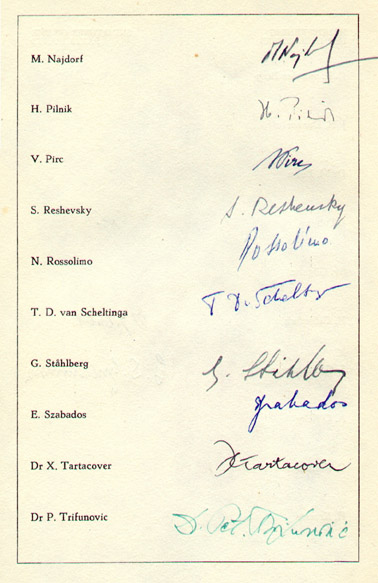 M. Najdorf MNajdorf
H. Pilnik H. Pilnik
V. Pirc VPirc
S. Reshevsky S. Reshevsky
N. Rossolimo Rossolimo
T. D. van Scheltinga T D. v Scheltinga
G. Ståhlberg G. Ståhlberg
E. Szabados Szabados
Dr X. Tartacover Tartacover
Dr P. Trifunovic Dr. Pet. Trifunović